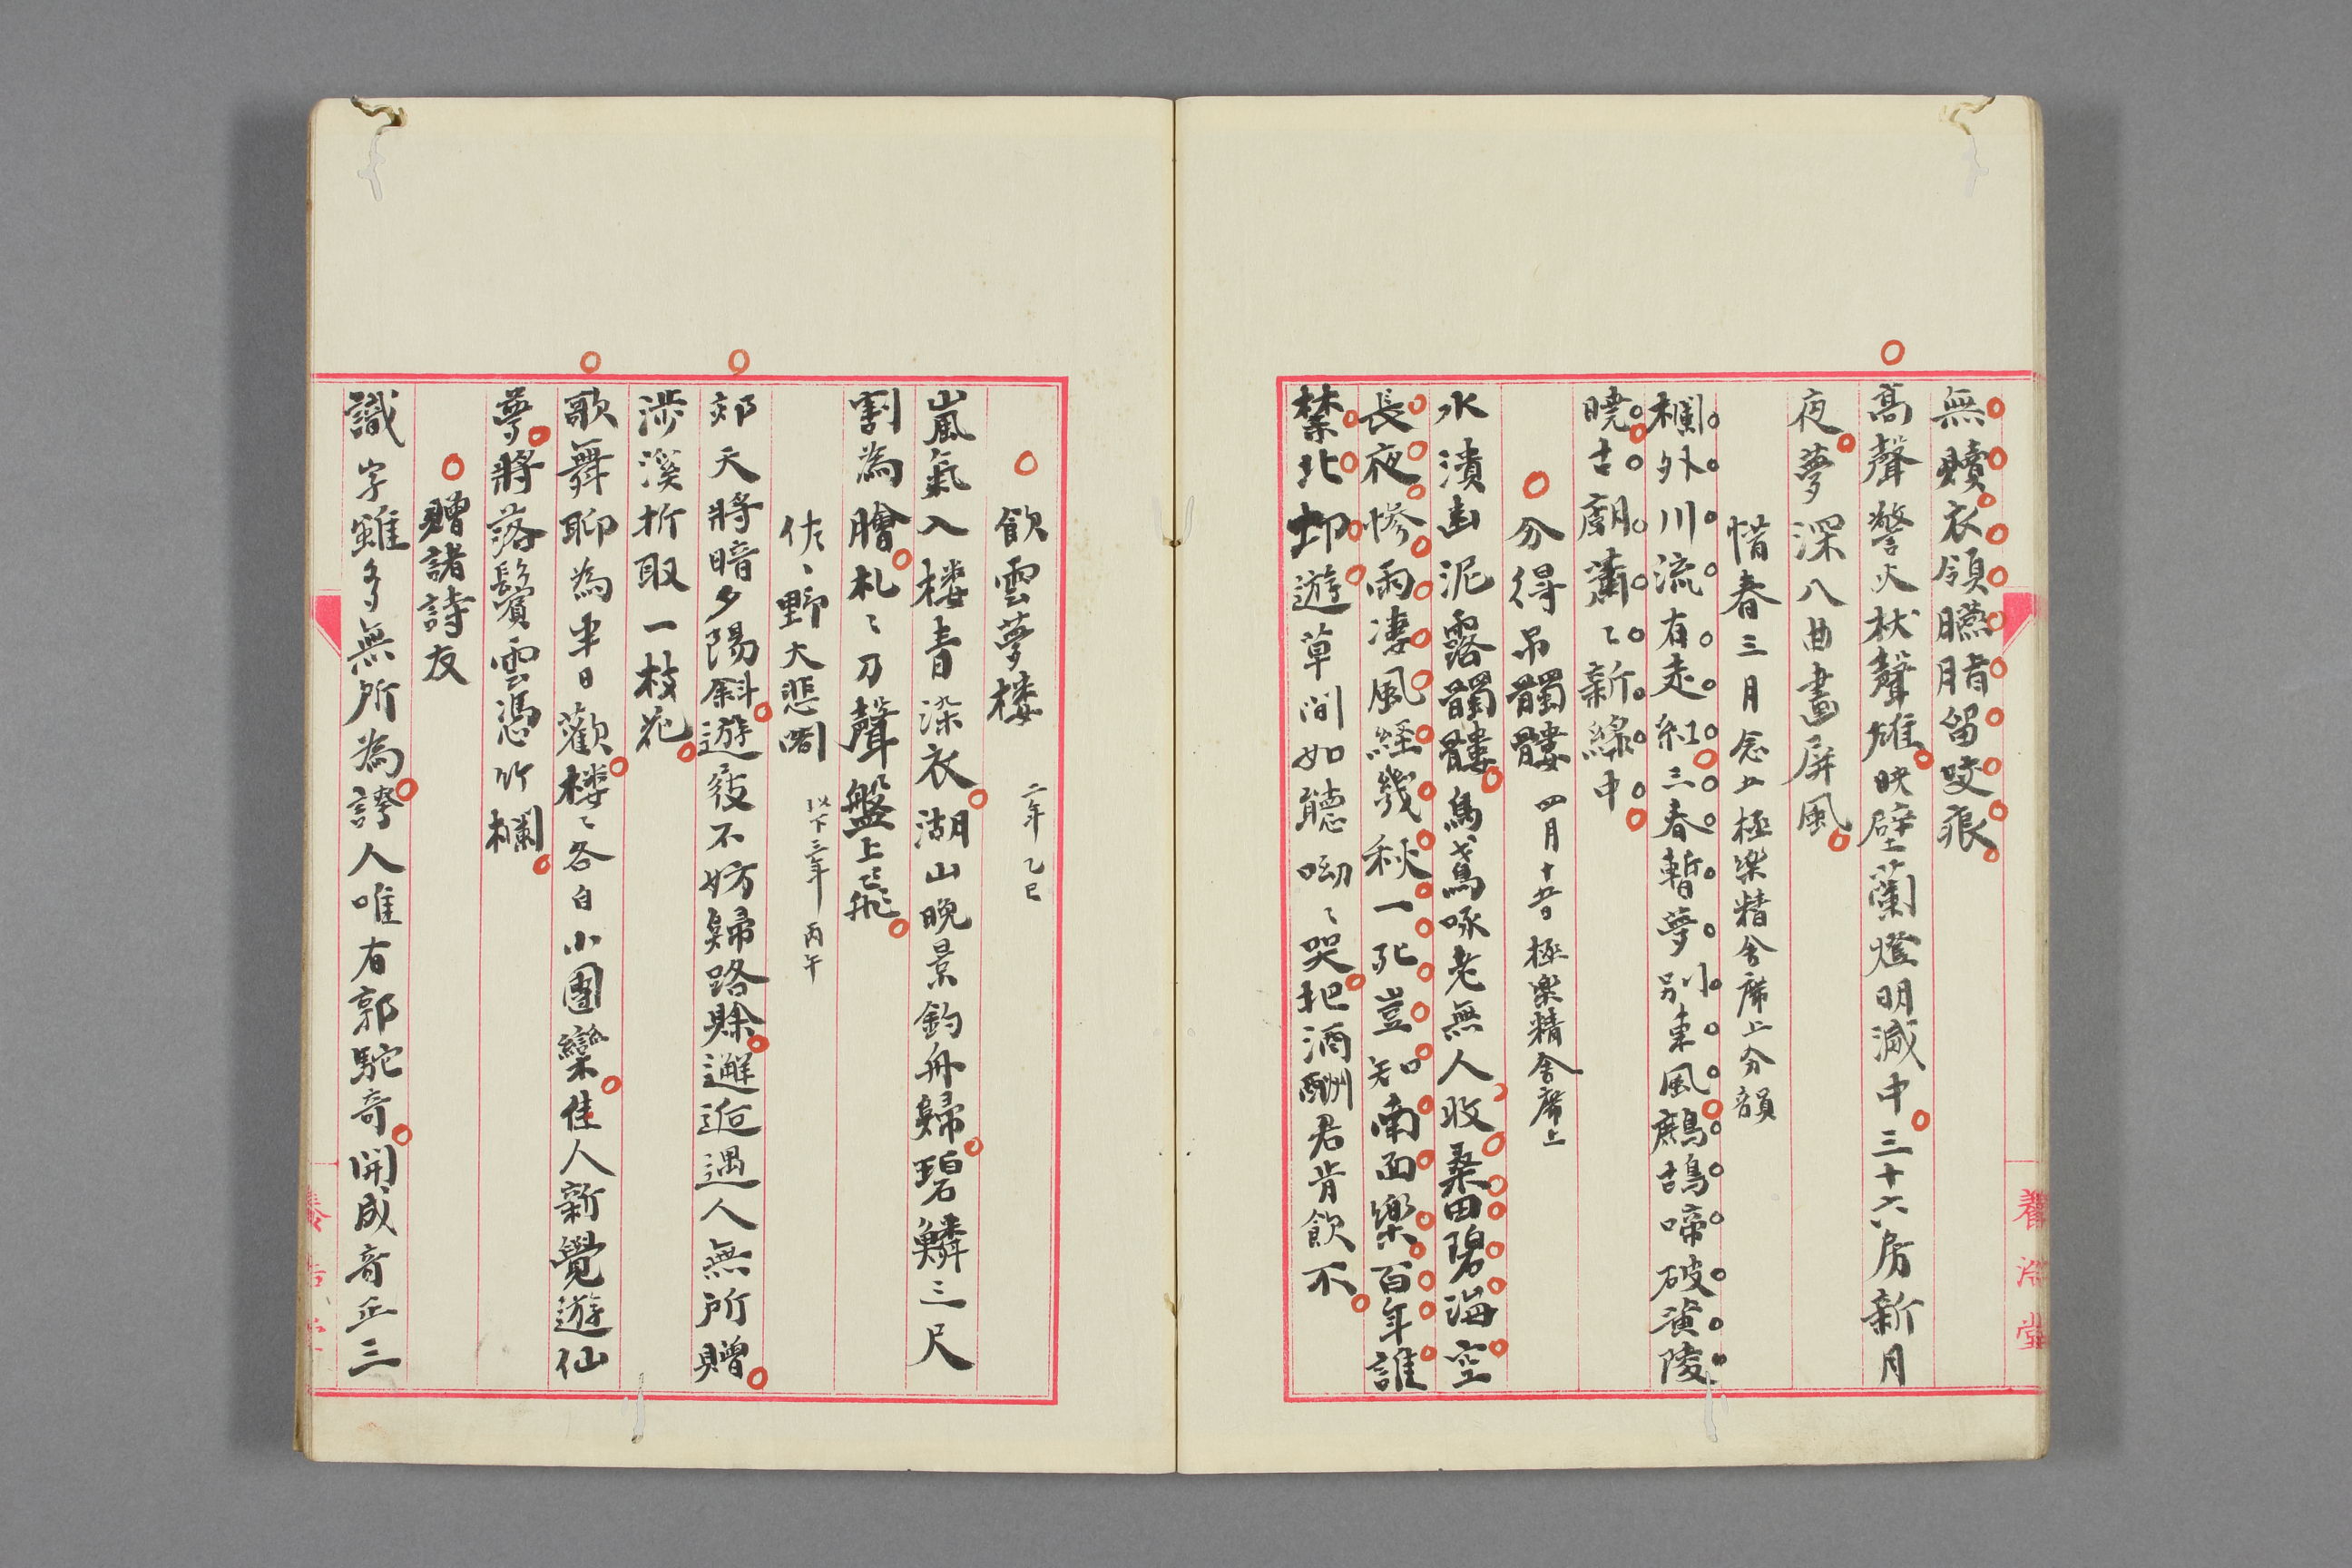 無贖衣領臙脂留咬痕
高聲警火柝聲雄映壁蘭燈明滅中三十六房新月
夜夢深八曲畫屏風
惜春三月念五極樂精舍席上分韻
欄外川流有走紅三春暫夢別東風鷓鴣啼破黃陵
曉古廟蕭〻新綠中
分得吊髑髏 四月十五日 極樂精舍席上
水潰幽泥露髑髏烏鳶啄老無人收桑田碧海空
長夜慘雨凄風経幾秋一死豈知南面樂百年誰
禁北邙遊草間如聽呦〻哭把酒酬君肯飲不
飲雲夢楼 二年乙巳
嵐氣入楼青染衣湖山晩景釣舟歸碧鱗三尺
割為膾札〻刀聲盤上飛
佐〻野大悲閣 以下三年丙午
郊天將暗夕陽斜遊夜不妨歸路賒邂逅遇人無所贈
渉溪折取一枝花
歌舞聊為半日歡楼〻各自小團欒佳人新覺遊仙
夢將落鬢雲憑竹欄
贈諸詩友
識字雖多無所為誇人唯有郭駝奇開成音丘三
養浩堂